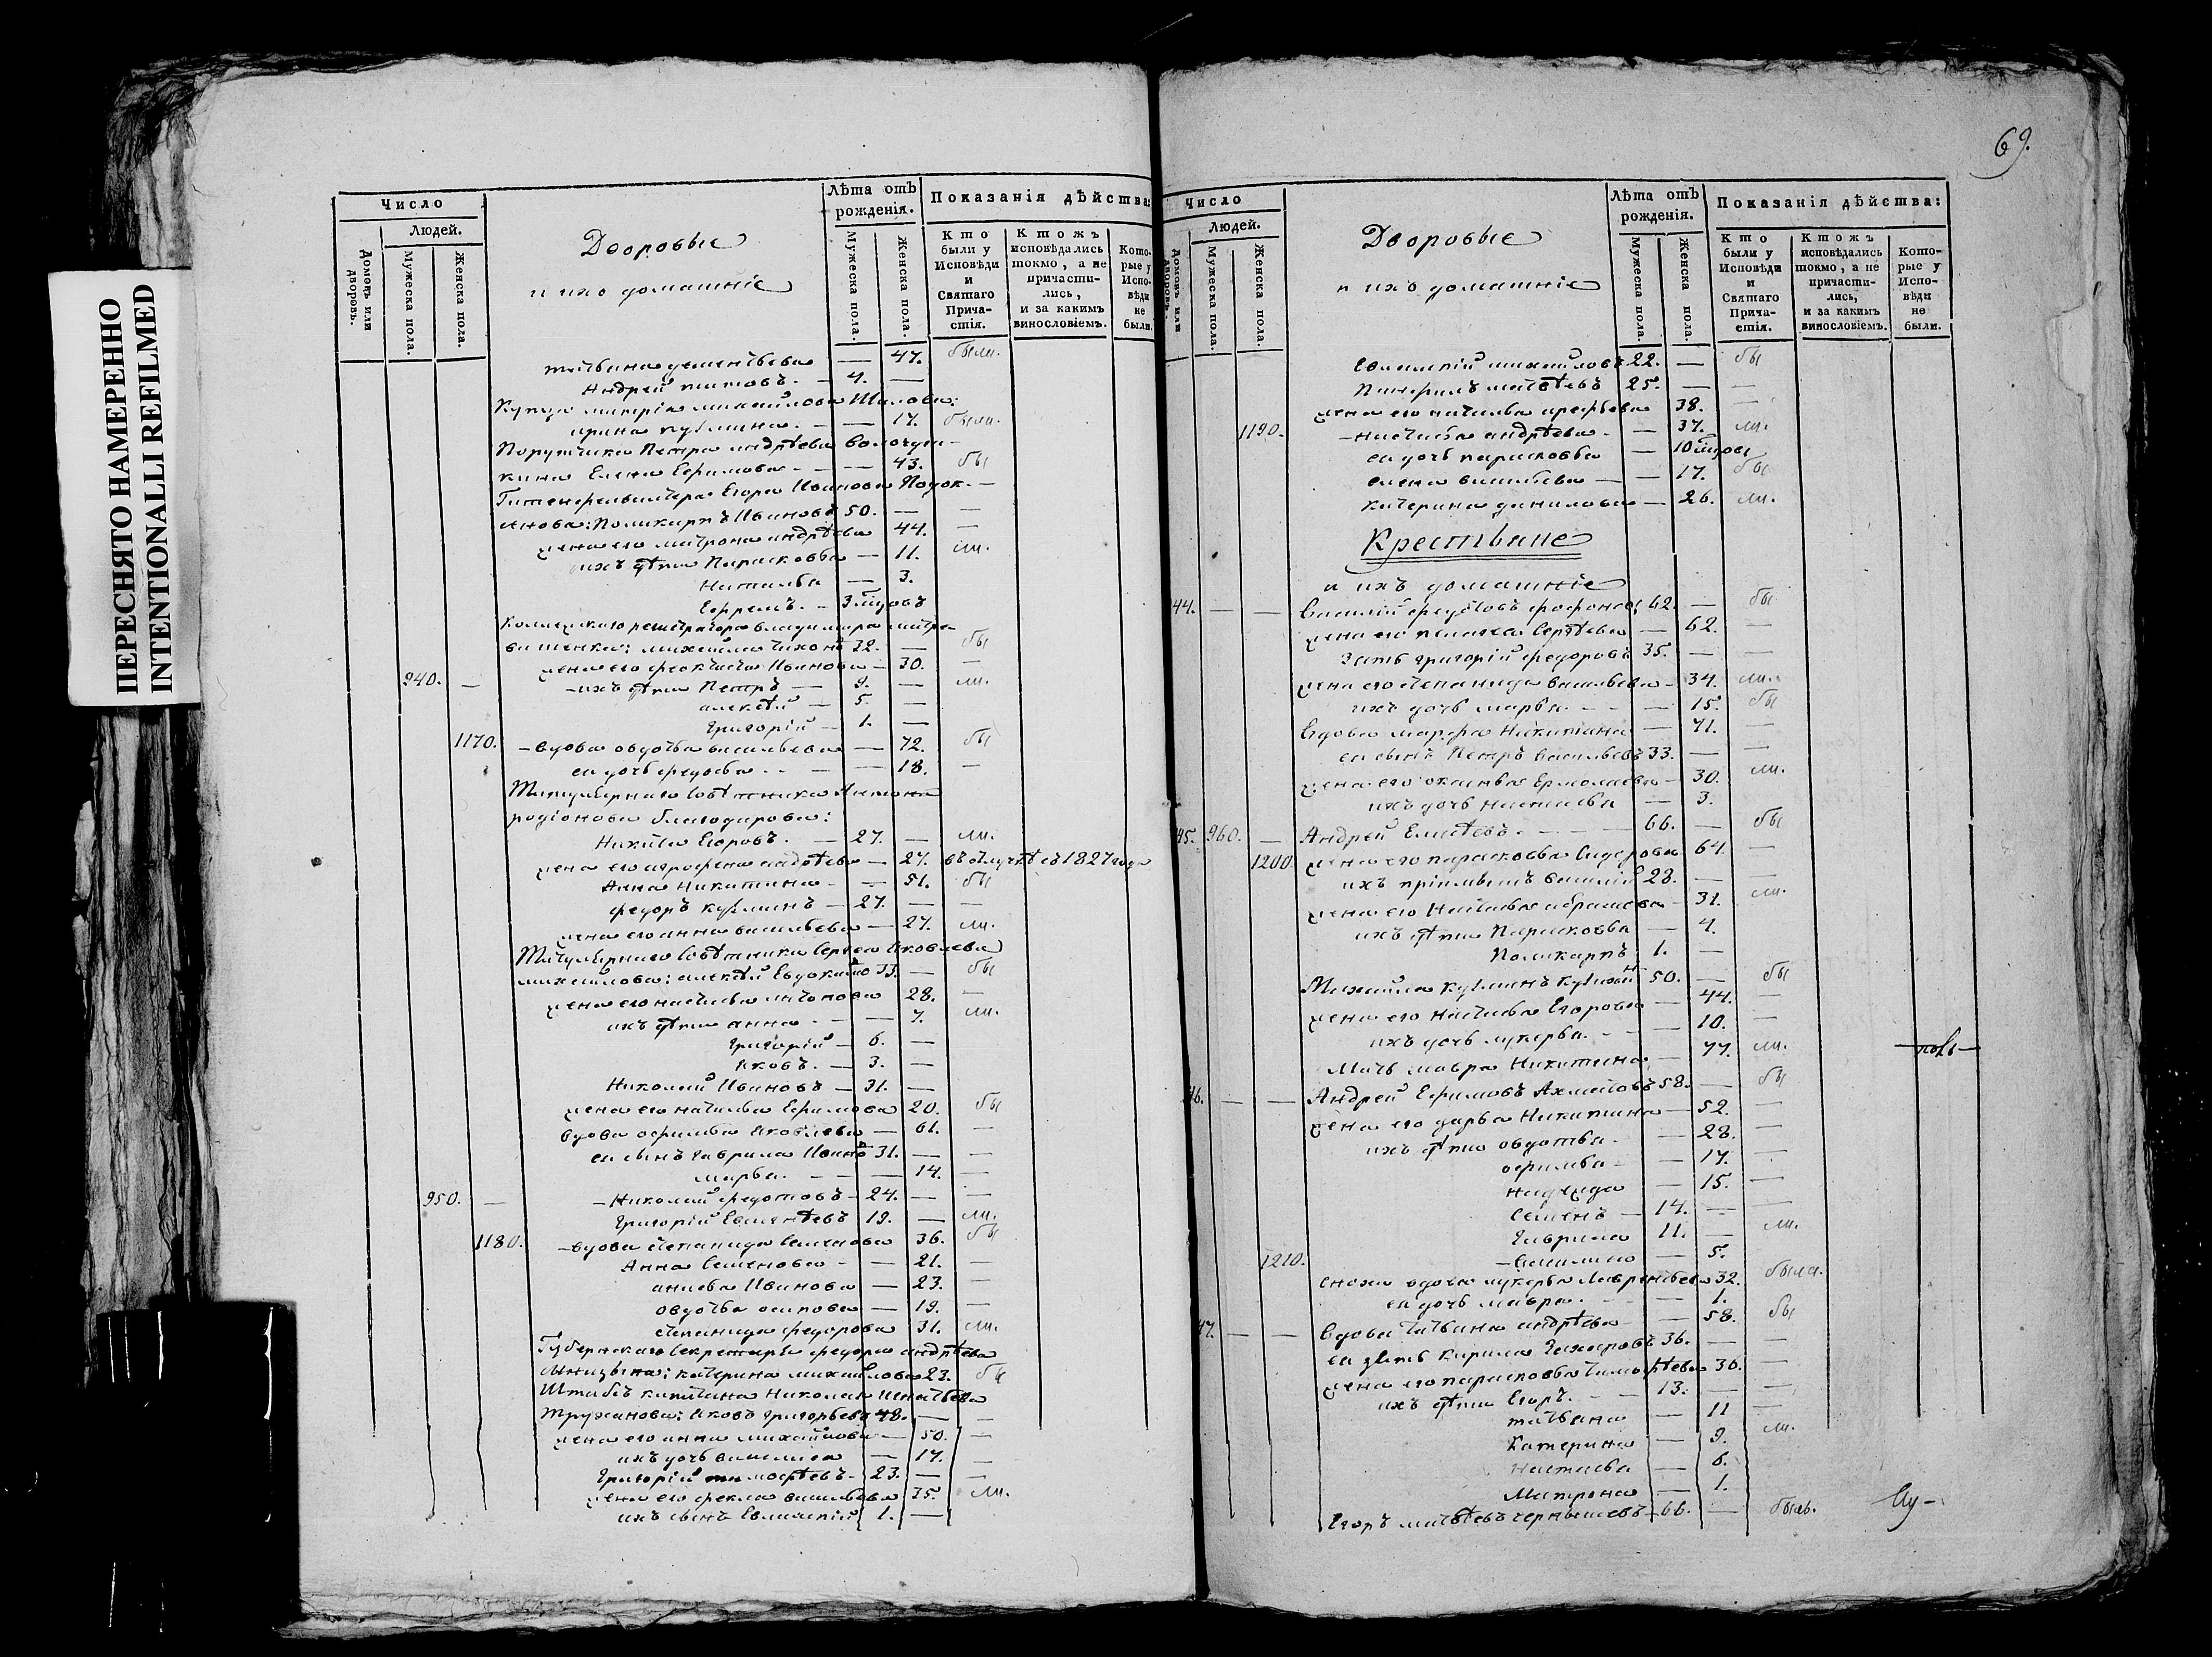 ПЕРЕСНЯТО НАМЕРЕННО
INTENTIONALLI REFILMED
Число
Людей.
Домовъ или дворовъ.
Мужеска пола.
Женска пола.
Дворовые
и ихъ домашніе
Лѣта отъ рожденія.
Мужеска пола.
Женска пола.
Показанія дѣйства:
Кто были у Исповѣди и Святаго Причастія.
Ктожъ исповѣдались токмо, а не причастились, и за какимъ винословіемъ.
Которые у Исповѣди не были.
47. были.
Андрей титовъ. — 4. —
17. были.
43. бы
Поликарпъ Ивановъ 50. — —
жена его матрона андрѣева 44. —
ихъ дѣти Парасковья — 11. ли.
Наталья — 3.
Ефремъ. — 3 мцовъ
32. — бы
жена его Ивонова — 30. —
940. — ихъ дѣти Петръ — 9. — ли.
алексѣй — 5. —
Григорій — 1. —
1170. — вдова овдотья васильевна — 72. бы
ея дочь федосья — 18. —
Титулярнаго Совѣтника Антона
родіонова благодарова:
Никита Егоровъ. — 27. — ли.
жена его аграфена андрѣева — 27. въ отлучкѣ съ 1827 года
Анна Никитина — — 51. бы
федоръ кузминъ — 27. — —
жена его анна васильева — 27. ли.
Титулярнаго Совѣтника Сергея Яковлева
михайлова: алексѣй Евдокимо 33. — бы
жена его настасья антонова 28. —
ихъ дѣти анна — — 7. ли.
Григорій — 6. —
Яковъ. — 3. —
Николай Ивановъ — 31. —
жена его наталья Ефимова 20. бы
вдова офимья Яковлева — 61. —
ея сынъ гаврила Ивано 31. — —
марья. — — 14. —
950. — — Николай федотовъ — 24. — —
Григорій 19. — ли.
1180. — вдова степанида Семенова 36. бы
Анна Семенова — — 21. —
анисья Иванова — 23. —
овдотья осипова — 19. —
степанида федорова 31. ли.
Губернскаго Секретаря федора андрѣева
катерина михайлова 23. бы
Штабсъ капитана Николая Игнатьева
Труханова: Яковъ григорьевъ 48. — —
жена его анна михайлова — 50. —
ихъ дочь василиса — 17. —
Григорій тимофѣевъ — 23. — —
жена его фекла васильева 35. ли.
ихъ сынъ Евлампій 1. —
69.
Число
Людей.
Домовъ или дворовъ.
Мужеска пола.
Женска пола.
Дворовые
и ихъ домашніе
Лѣта отъ рожденія.
Мужеска пола.
Женска пола.
Показанія дѣйства:
Кто были у Исповѣди и Святаго Причастія.
Ктожъ исповѣдались токмо, а не причастились, и за какимъ винословіемъ.
Которые у Исповѣди не были.
Евлампій михайловъ 22. — бы
матвѣевъ 25. — —
жена его наталья арефьева 38. —
1190. — Настасья андрѣева — — 37. ли.
ея дочь парасковья — 10 мцов
елена васильева — — 17. бы
катерина данилова — 26. ли.
Крестьяне
и ихъ домашніе
44. — — Василій федотовъ 62. — бы
жена его пелагея Сергѣева — 62. —
Зять григорій федоровъ 35. — —
жена его степанида васильева — 34. ли.
ихъ дочь марья. — — 15. бы
Вдова марфа Никитина — 71. —
ея сынъ Петръ васильевъ 33. — —
жена его оксинья Ермолаева — 30. ли.
ихъ дочь настасья — 3.
45. 960. — Андрей Елисѣевъ. — — 66. — бы
1200. жена его парасковья Сидорова 64. —
ихъ пріимышъ василій 28. — —
жена его Настасья абрамова — 31. ли.
ихъ дѣти Парасковья — 4.
Поликарпъ 1. —
Михайла кузминъ 50. — бы
жена его настасья Егорова — 44. —
ихъ дочь лукерья. — — 10. —
Мать мавра Никитина — 77. ли.
46. — — Андрей Ефимовъ Ахметовъ 58. — бы
жена его дарья Никитина — 52. —
ихъ дѣти овдотья — — 28. —
офимья — — 17. —
надежда — 15. —
Семенъ — 14. — —
Гаврила 11. — ли.
1210. — василиса — 5.
сноха вдова лукерья Лаврентьева 32. была.
ея дочь мавра. — — 1.
47. — — Вдова татьяна андрѣева — 58. бы
ея зять кирила Захаровъ 36. — —
жена его парасковья тимофѣева 36. —
ихъ дѣти Егоръ. — 13. — —
татьяна — 11 —
Катерина — 9. ли.
настасья — 6.
Матрона — 1.
Егоръ матвѣевъ чернышевъ 66. — былъ.